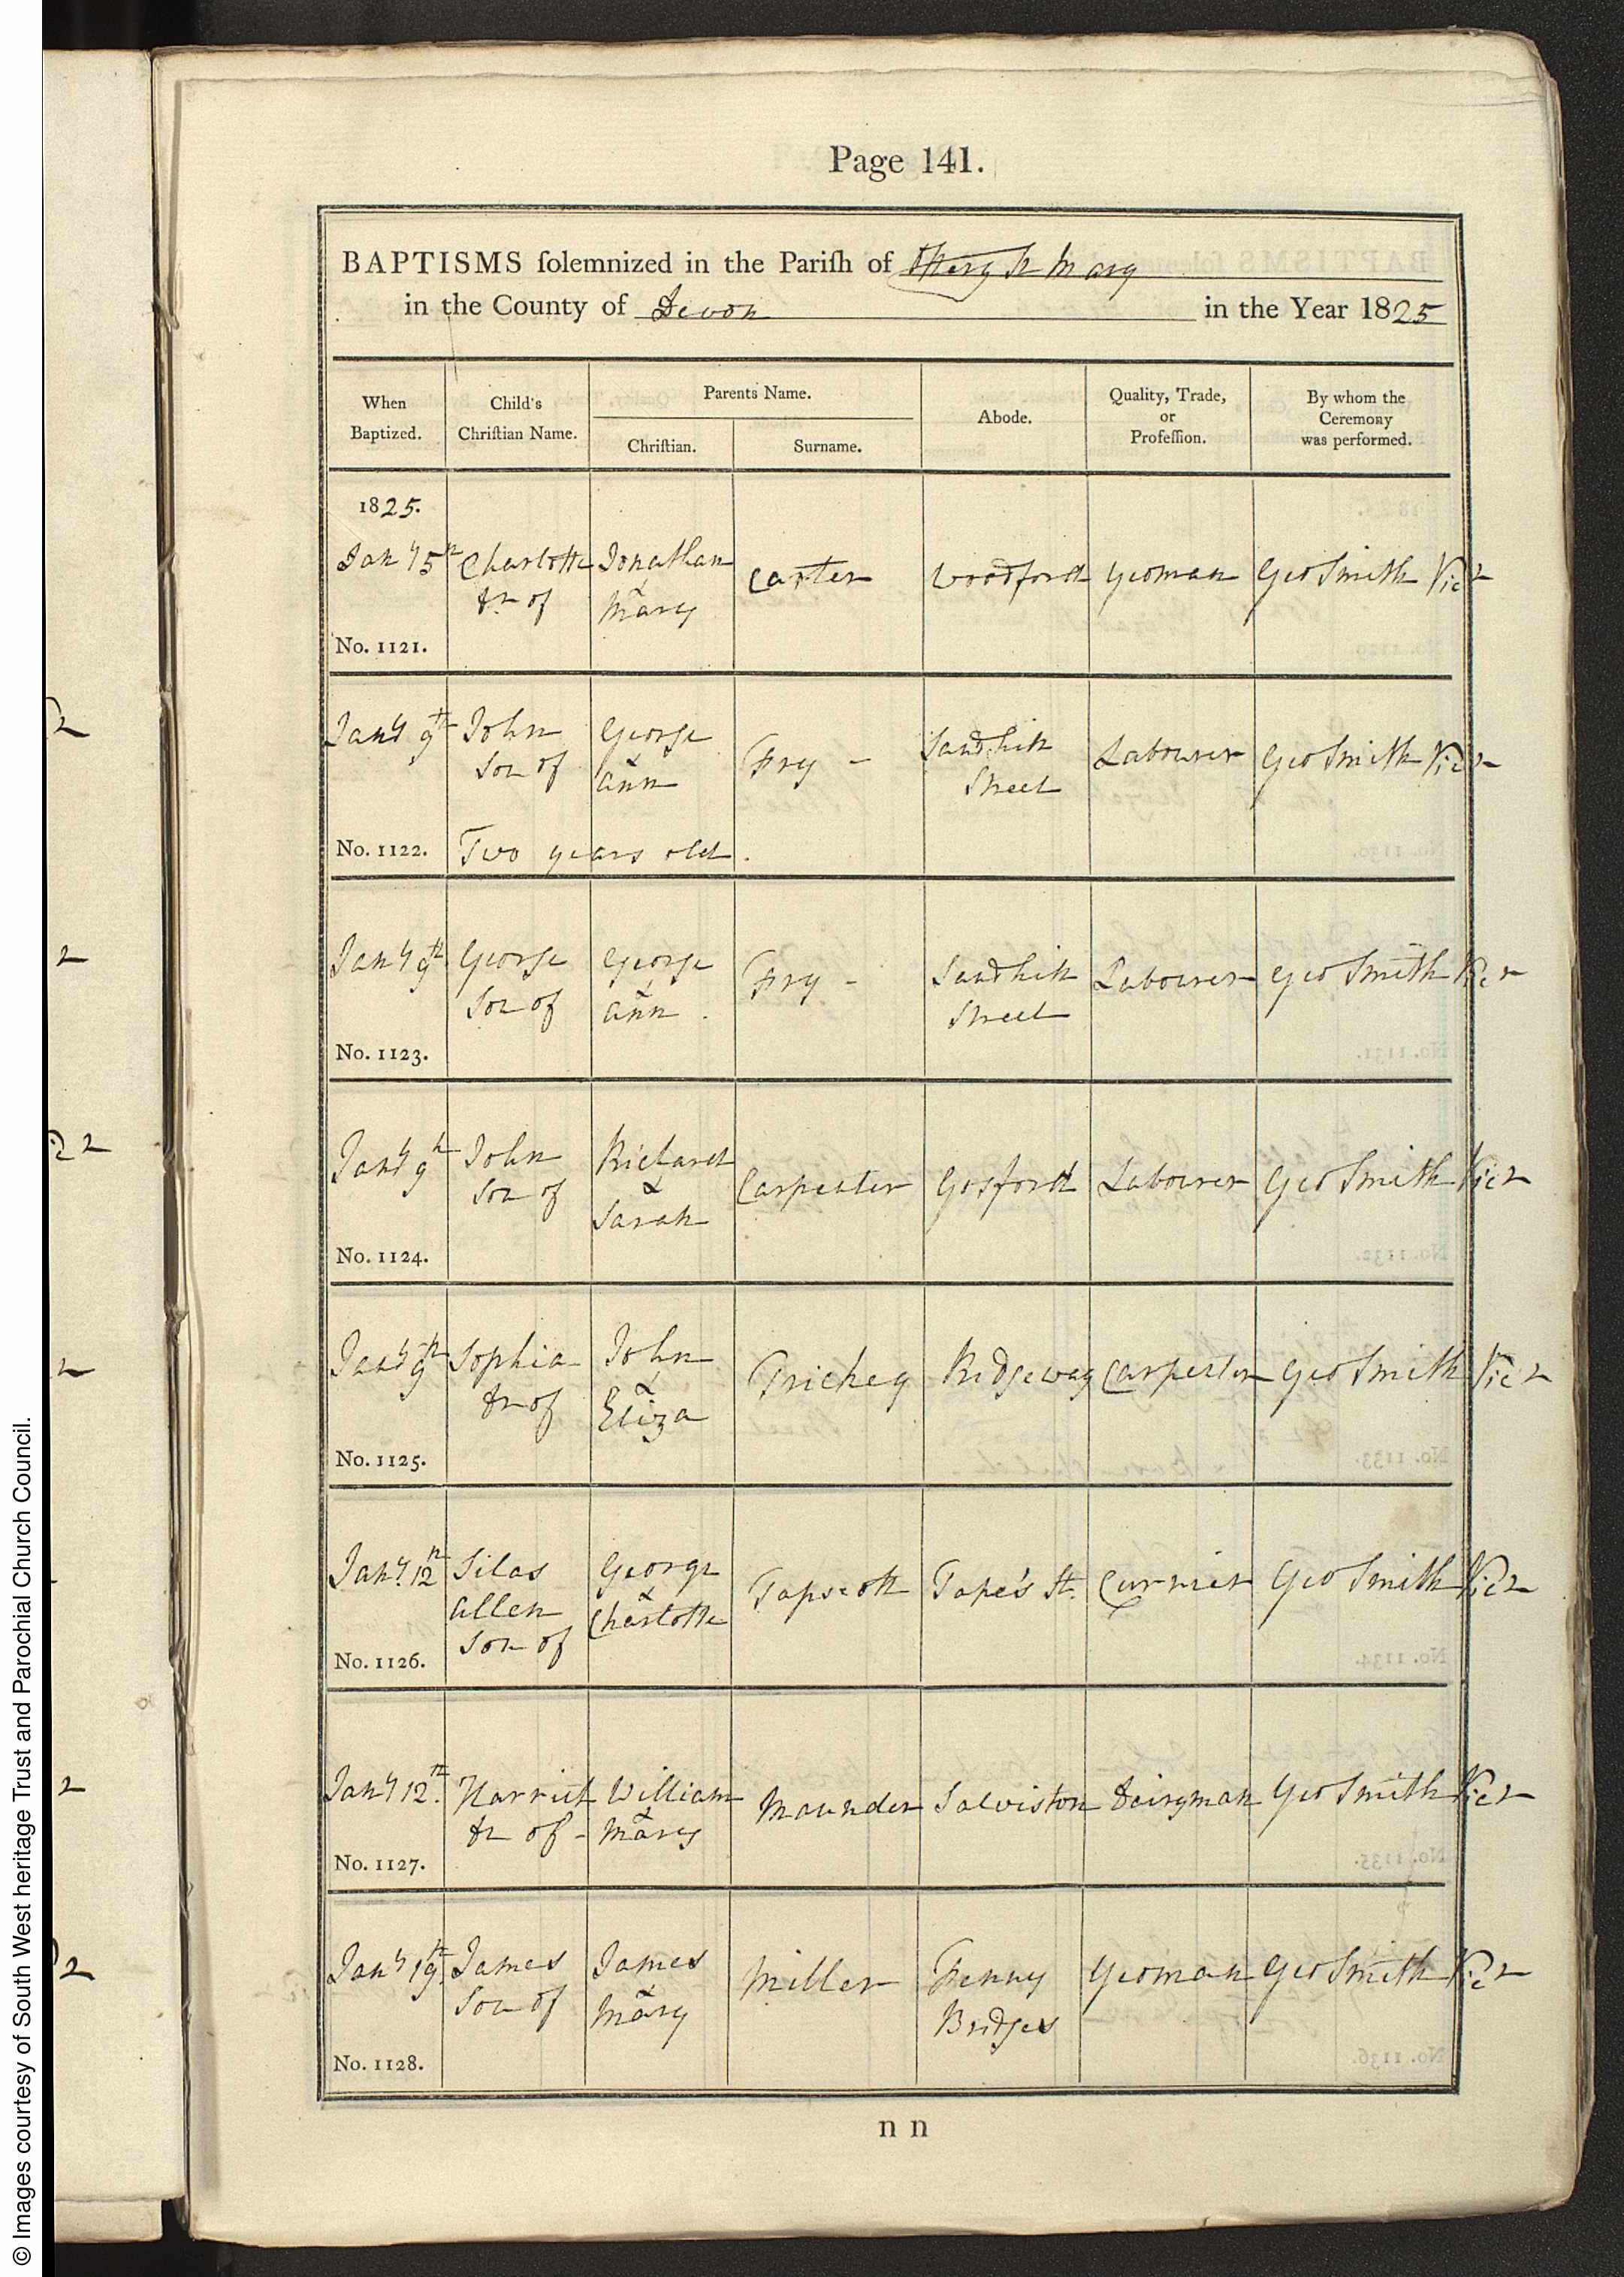 Page 141.
BAPTISMS solemnized in the Parish of Ottery St Mary
in the County of Devon in the Year 1825
When Baptized.
Child's Christian Name.
Parents Name.
Christian.
Surname.
Abode.
Quality, Trade, or Profession.
By whom the Ceremony was performed.
1825.
Jany 5th Charlotte Dr of Jonathan & Mary Carter Woodford Yeoman Geo Smith Vicr
No. 1121.
Jany 9th John Son of George & Ann Fry - Sandhill Street Labourer Geo Smith Vicr
No. 1122. Two years old.
Jany 9th George Son of George & Ann. Fry - Sandhill Street Labourer Geo Smith Vicr
No. 1123.
Jany 9th John Son of Richard & Sarah Carpenter Gosford Labourer Geo Smith Vicr
No. 1124.
Jany 9th Sophia Dr of John & Eliza Trickey Ridgeway Carpenter Geo Smith Vicr
No. 1125.
Jany. 12th Silas Allen Son of George & Charlotte Tapscott Tape's St. Currier Geo Smith Vicr
No. 1126.
Jany 12th. Harriet Dr of - William & Mary Maunder Salviston Dairyman Geo Smith Vicr
No. 1127.
Jany 19th James Son of James & Mary Miller Fenny Bridges Yeoman Geo Smith Vicr
No. 1128.
n n
© Images courtesy of South West heritage Trust and Parochial Church Council.